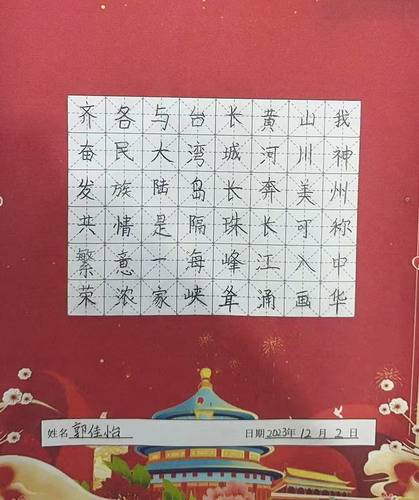 我神州称中华
山川美可入画
黄河奔长江涌
长城长珠峰耸
台湾岛隔海峡
与大陆是一家
各民族情意浓
齐奋发共繁荣
姓名 郭佳怡 日期 2023年 12 月 2 日